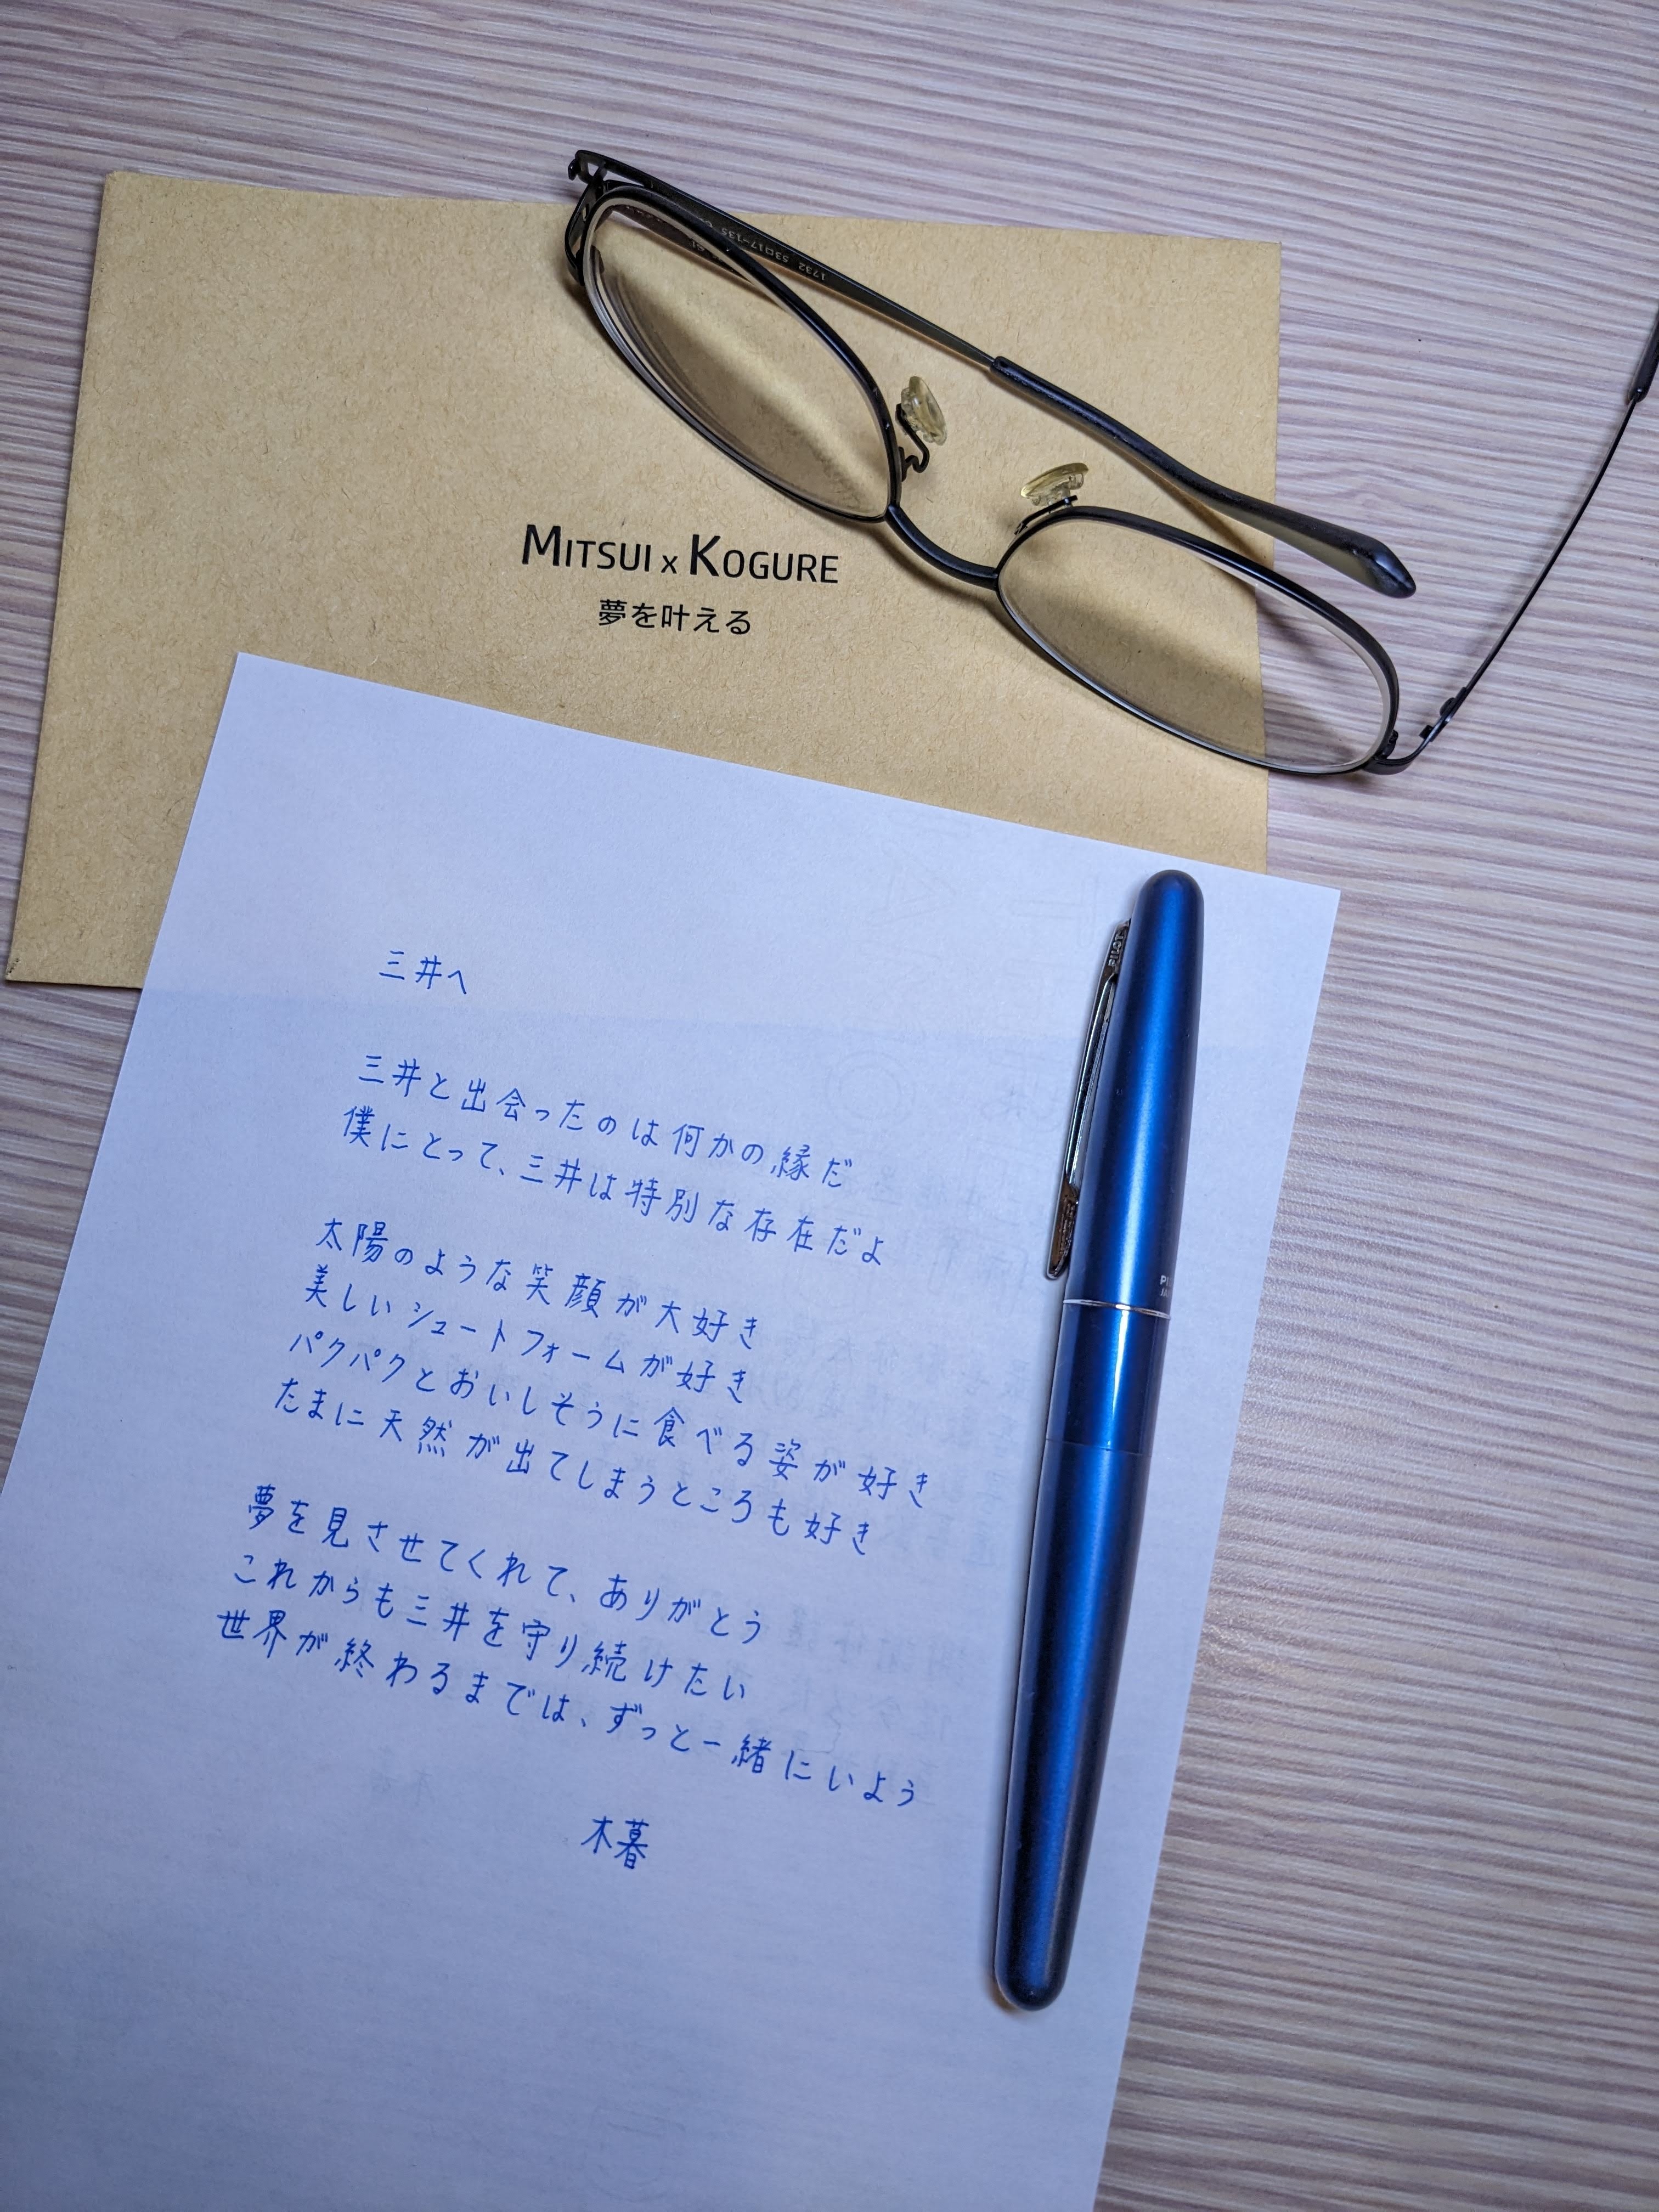 1732 53□17-135
MITSUI x KOGURE
夢を叶える
三井へ
三井と出会ったのは何かの縁だ
僕にとって、三井は特別な存在だよ
太陽のような笑顔が大好き
美しいシュートフォームが好き
パクパクとおいしそうに食べる姿が好き
たまに天然が出てしまうところも好き
夢を見させてくれて、ありがとう
これからも三井を守り続けたい
世界が終わるまでは、ずっと一緒にいよう
木暮